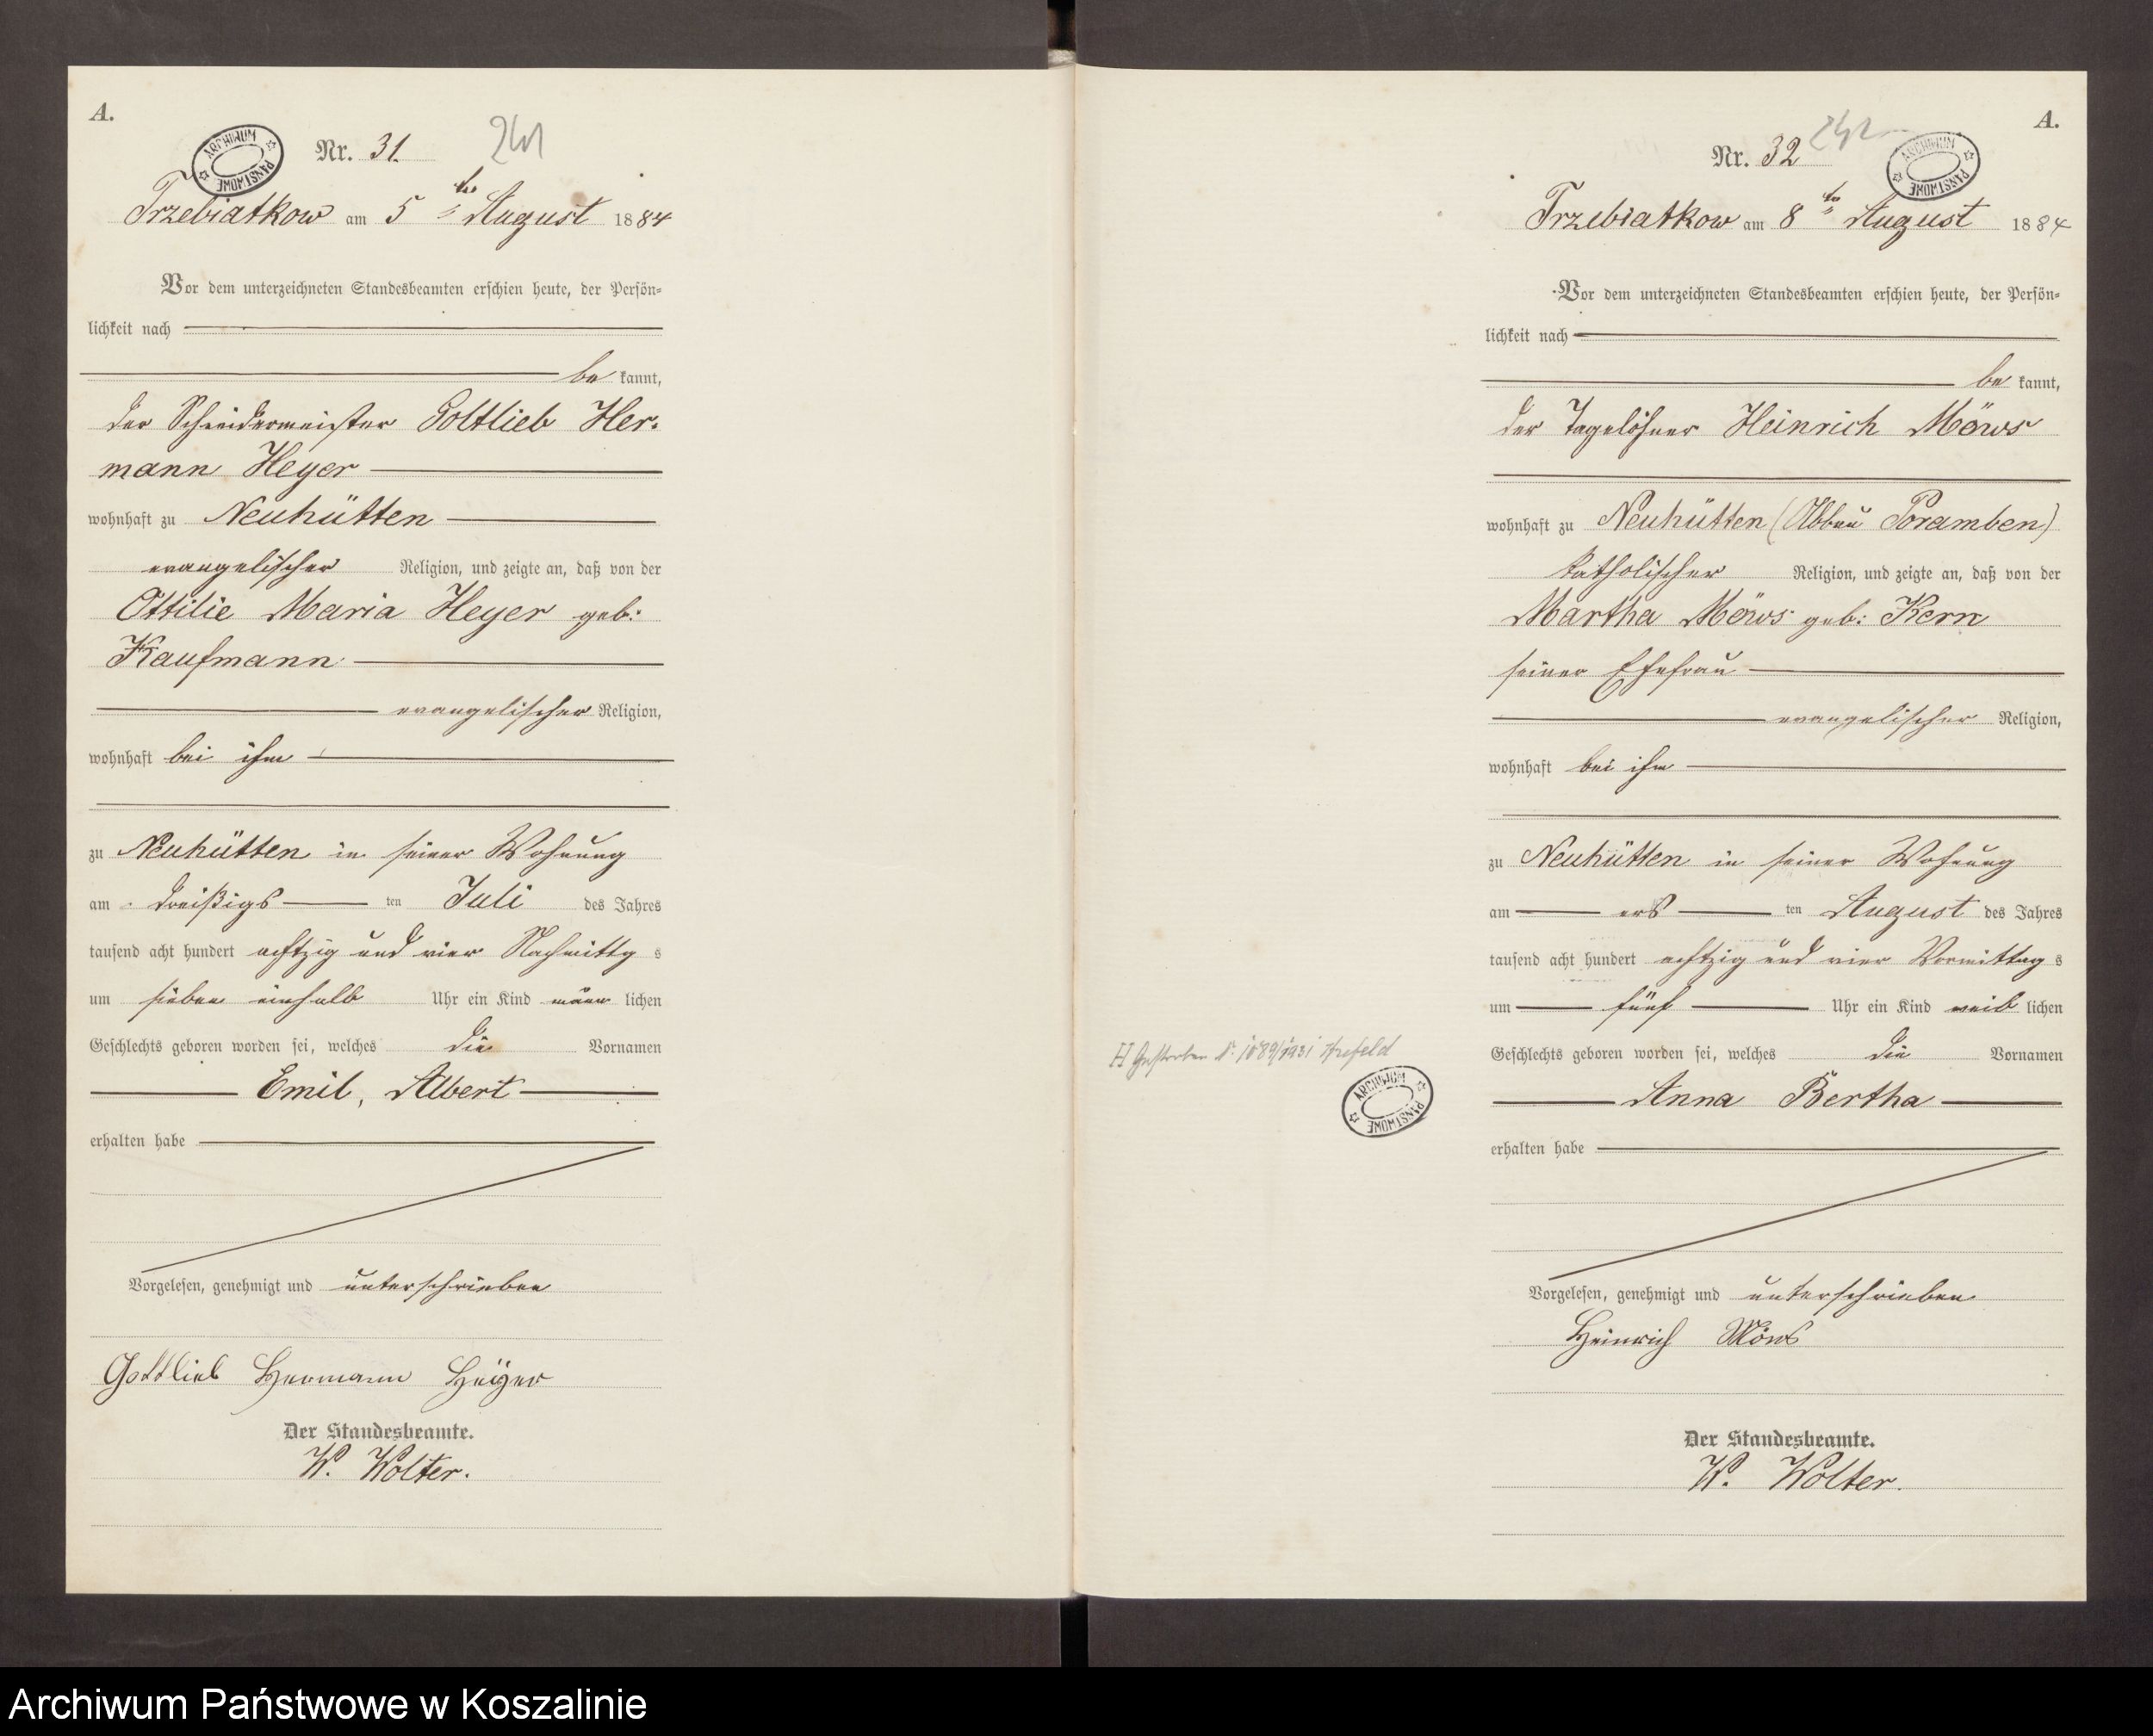 A.
ARCHIWUM PAŃSTWOWE
Nr. 31.
241
Trzebiatkow am 5ten August 1884
Vor dem unterzeichneten Standesbeamten erschien heute, der Persön-
lichkeit nach
be kannt,
der Schneidermeister Gottlieb Her-
mann Heyer
wohnhaft zu Neuhütten
evangelischer Religion, und zeigte an, daß von der
Ottilie Maria Heyer geb:
Kaufmann
evangelischer Religion,
wohnhaft bei ihm
zu Neuhütten in seiner Wohnung
am dreißigs ten Juli des Jahres
tausend acht hundert achtzig und vier Nachmittg s
um sieben einhalb Uhr ein Kind männ lichen
Geschlechts geboren worden sei, welches die Vornamen
Emil, Albert
erhalten habe
Vorgelesen, genehmigt und unterschrieben
Gottlieb Hermann Heÿer
Der Standesbeamte.
W. Wolter.
A.
Nr. 32
242
ARCHIWUM PAŃSTWOWE
Trzebiatkow am 8ten August 1884
Vor dem unterzeichneten Standesbeamten erschien heute, der Persön-
lichkeit nach
be kannt,
der Tagelöhner Heinrich Möws
wohnhaft zu Neuhütten (Abbau Poramben)
katholischer Religion, und zeigte an, daß von der
Martha Möws geb: Kern
seiner Ehefrau
evangelischer Religion,
wohnhaft bei ihm
zu Neuhütten in seiner Wohnung
am ers ten August des Jahres
tausend acht hundert achtzig und vier Vormittag s
um fünf Uhr ein Kind weib lichen
Geschlechts geboren worden sei, welches die Vornamen
Anna Bertha
erhalten habe
H Gestorben Nr. 1089/1931 Krefeld
ARCHIWUM PAŃSTWOWE
Vorgelesen, genehmigt und unterschrieben
Heinrich Möws
Der Standesbeamte.
W. Wolter.
Archiwum Państwowe w Koszalinie